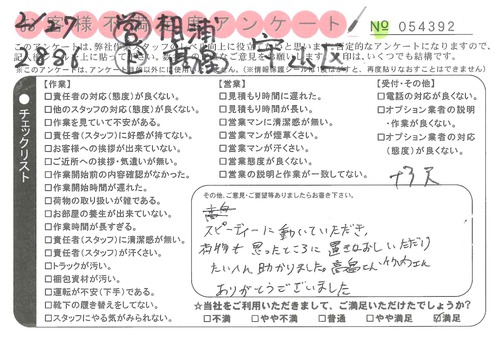 お客様不満度アンケート
№ 054392
2/27
2886
営 相浦
高畠
このアンケートは、弊社作
※このアンケートは
(※情報保護シール
再度貼りなおすことはできません)
チェックリスト
【作業】
□責任者の対応(態度)が良くない。
□他のスタッフの対応(態度)が良くない。
□作業を見ていて不安がある。
□責任者(スタッフ)に好感が持てない。
□お客様への挨拶が出来ていない。
□ご近所への挨拶・気遣いが無い。
□作業開始前の内容確認がなかった。
□作業開始時間が遅れた。
□荷物の取り扱いが雑である。
□お部屋の養生が出来ていない。
□作業時間が長すぎる。
□責任者(スタッフ)に清潔感が無い。
□責任者(スタッフ)が汗くさい。
□トラックが汚い。
□梱包資材が汚い。
□運転が不安(下手)である。
□靴下の履き替えをしてない。
□スタッフにやる気がみられない。
【営業】
□見積もり時間に遅れた。
□見積もり時間が長い。
□営業マンに清潔感が無い。
□営業マンが煙草くさい。
□営業マンが汗くさい。
□営業態度が良くない。
□営業の説明と作業が一致してない。
【受付・その他】
□電話の対応が良くない。
□オプション業者の説明
・作業が良くない。
□オプション業者の対応
(態度)が良くない。
その他、ご意見・ご要望等ありましたらお書き下さい。
スピーディーに動いていただき、
荷物も思ったところに置きなおしいただけ
たいへん助かりました。高畠さん、竹内さん
ありがとうございました
★当社をご利用いただきまして、ご満足いただけたでしょうか?
□不満 □やや不満 □普通 □やや満足 ☑満足